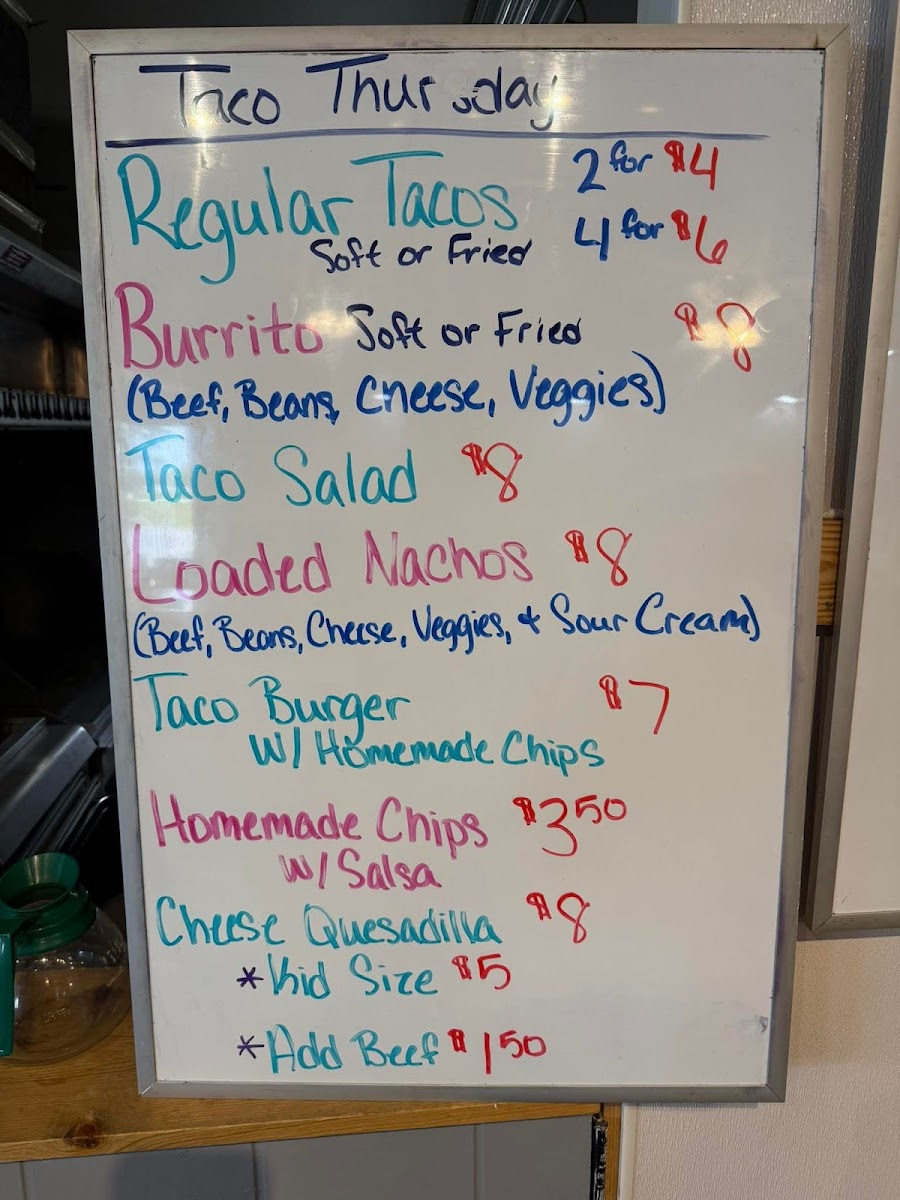 Taco Thursday
Regular Tacos 2 for $4
Soft or Fried 4 for $6
Burrito Soft or Fried $8
(Beef, Beans, Cheese, Veggies)
Taco Salad $8
Loaded Nachos $8
(Beef, Beans, Cheese, Veggies, & Sour Cream)
Taco Burger $7
W/ Homemade Chips
Homemade Chips $3 50
W/ Salsa
Cheese Quesadilla $8
* Kid Size $5
* Add Beef $1 50